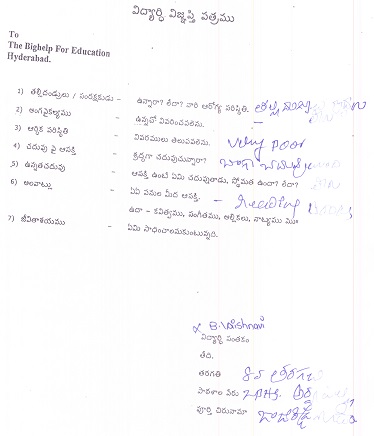 విద్యార్థి విజ్ఞప్తి పత్రము
To
The Bighelp For Education
Hyderabad.
1) తల్లిదండ్రులు / సంరక్షకుడు - ఉన్నారా? లేదా? వారి ఆరోగ్య పరిస్థితి.
2) అంగవైకల్యము - ఉన్నచో వివరించవలెను. -
3) ఆర్థిక పరిస్థితి - వివరములు తెలుపవలెను. very poor
4) చదువు పై ఆసక్తి - శ్రద్ధగా చదువుచున్నారా? బాగా
5) ఉన్నతచదువు - ఆసక్తి ఉంటే ఏమి చదువుతాడు, స్తోమత ఉందా? లేదా?
6) అలవాట్లు - ఏఏ పనుల మీద ఆసక్తి. - Reading
ఉదా - కవిత్వము, సంగీతము, అల్లికలు, నాట్యము మొ॥
7) జీవితాశయము - ఏమి సాధించాలనుకుంటున్నది.
B. Vaishnavi
విద్యార్థి సంతకం
తేది.
తరగతి 8వ తరగతి
పాఠశాల పేరు ZPHS
పూర్తి చిరునామా